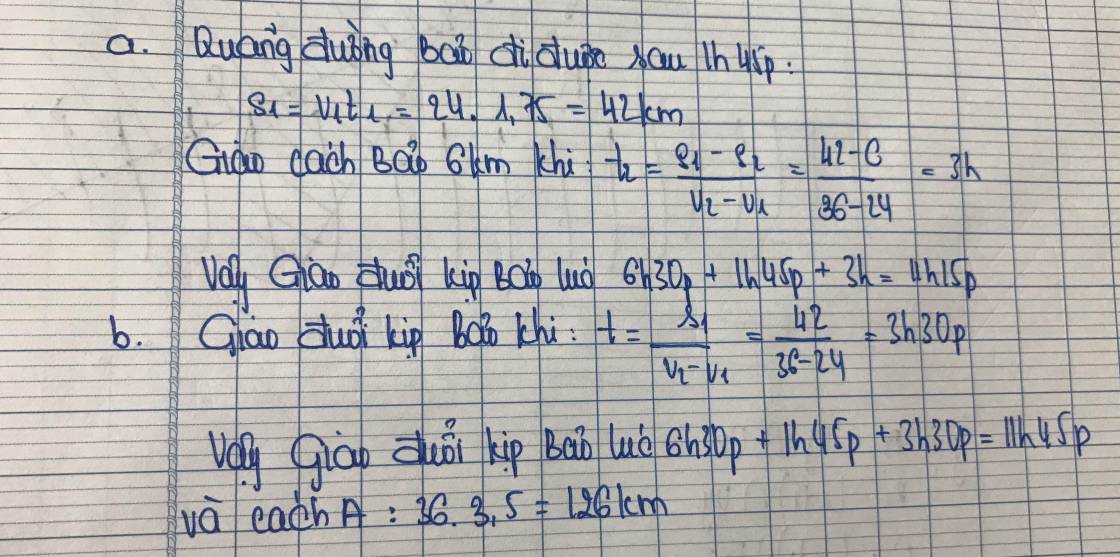 a. Quảng đường Bảo đi được sau 1h45p:
S1 = V1t1 = 24. 1,75 = 42km
Giao cách Bảo 6km khi: t2 = (S1 - S2)/(V2 - V1) = (42-6)/(36-24) = 3h
Vậy Giao đuổi kịp Bảo lúc 6h30p + 1h45p + 3h = 11h15p
b. Giao đuổi kịp Bảo khi: t = S1/(V2 - V1) = 42/(36-24) = 3h30p
Vậy Giao đuổi kịp Bảo lúc 6h30p + 1h45p + 3h30p = 11h45p
và cách A : 36. 3,5 = 126km